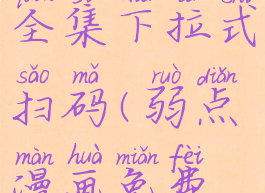 全集下拉式
sǎo mǎ ruò diǎn
扫码(弱点
màn huà miǎn fèi
漫画免费